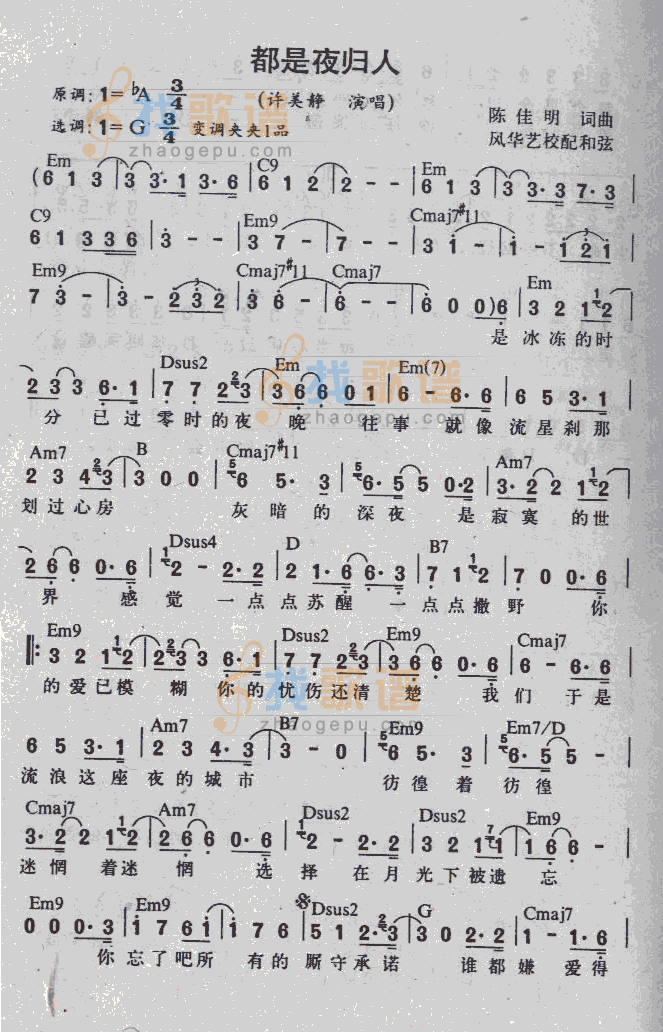 都是夜归人
原调:1=♭A 3/4
(许美静 演唱)
选调:1=G 3/4 变调夹夹1品
陈佳明 词曲
风华艺校配和弦
找歌谱
zhaogepu.com
Em C9 Em
(6 1 3 | 3 3· 1 3· 6 | 6 1 2 | 2 - - | 6 1 3 | 3 3· 3 7· 3 |
C9 Em9 Cmaj7#11
6 1 3 3 6 | 3 - - | 3 7 - | 7 - - | 3 1 - | 1 - 1 2 1 |
Em9 Cmaj7#11 Cmaj7 Em
7 3 - | 3 - 2 3 2 | 3 6 - | 6 - - | 6 0 0) 6 | 3 2 1 2
是 冰冻的时
Dsus2 Em Em(7)
2 3 3 6· 1 | 7 7 2 3 | 3 6 6 0 1 | 6 - 6· 6 | 6 5 3· 1 |
分 已过零时的夜 晚 往事 就像流星刹那
Am7 B Cmaj7#11 Am7
2 3 4 3 | 3 0 0 | 6 5· 3 | 6· 5 5 0·2 | 3· 2 2 1 2
划过心房 灰暗的深夜 是寂寞 的世
Dsus4 D B7
2 6 6 0· 6 | 2 - 2· 2 | 2 1· 6 6· 3 | 7 1 2 | 7 0 0· 6 |
界 感觉 一点点苏醒 一点点撒野 你
Em9 Dsus2 Em9 Cmaj7
‖: 3 2 1 2 | 2 3 3 6· 1 | 7 7 2 3 | 3 6 6 0· 6 | 6 - 6· 6 |
的爱已模 糊 你的忧伤还清 楚 我们 于是
Am7 B7 Em9 Em7/D
6 5 3· 1 | 2 3 4· 3 | 3 - 0 | 6 5· 3 | 6· 5 5 - |
流浪这座夜的城市 彷徨着彷徨
Cmaj7 Am7 Dsus2 Dsus2 Em9
3· 2 2 1 2 | 2 6 6 0· 6 | 2 - 2· 2 | 3 2 1 1 | 1 6 6 - |
迷惘 着迷 惘 选择 在月光下被遗 忘
Em9 Em9 Dsus2 G Cmaj7
0 0 0· 3 | 1 7 6 1 | 1 7 6 | 5 1 2· 3 | 3 0 2· 2 | 1 - 1· 6 |
你忘了吧所 有的厮守承诺 谁都嫌 爱得